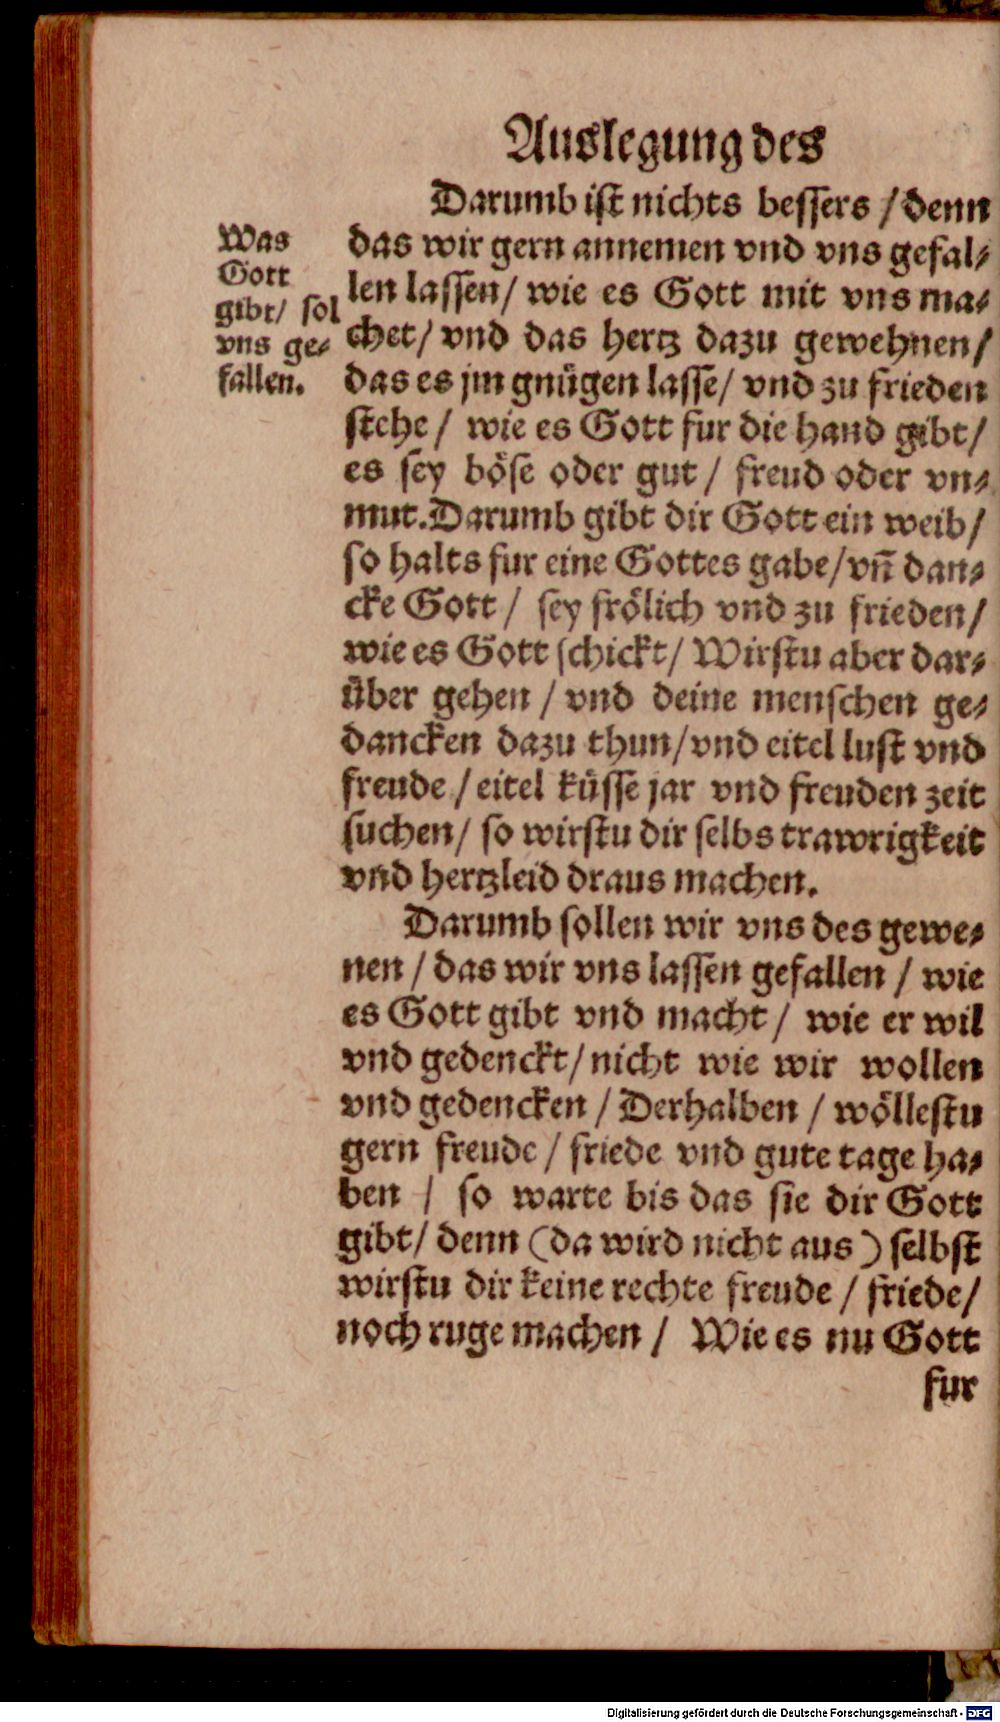 Auslegung des
Darumb ist nichts bessers / denn
das wir gern annemen vnd vns gefal⸗
len lassen / wie es Gott mit vns ma⸗
chet / vnd das hertz dazu gewehnen /
das es jm gnügen lasse / vnd zu frieden
stehe / wie es Gott fur die hand gibt /
es sey böse oder gut / freud oder vn⸗
mut. Darumb gibt dir Gott ein weib /
so halts fur eine Gottes gabe / vn̄ dan⸗
cke Gott / sey frölich vnd zu frieden /
wie es Gott schickt / Wirstu aber dar⸗
über gehen / vnd deine menschen ge⸗
dancken dazu thun / vnd eitel lust vnd
freude / eitel küsse jar vnd freuden zeit
suchen / so wirstu dir selbs trawrigkeit
vnd hertzleid draus machen.
Darumb sollen wir vns des gewe⸗
nen / das wir vns lassen gefallen / wie
es Gott gibt vnd macht / wie er wil
vnd gedenckt / nicht wie wir wollen
vnd gedencken / Derhalben / wöllestu
gern freude / friede vnd gute tage ha⸗
ben / so warte bis das sie dir Gott
gibt / denn (da wird nicht aus) selbst
wirstu dir keine rechte freude / friede /
noch ruge machen / Wie es nu Gott
fur
Was
Gott
gibt / sol
vns ge⸗
fallen.
Digitalisierung gefördert durch die Deutsche Forschungsgemeinschaft - DFG